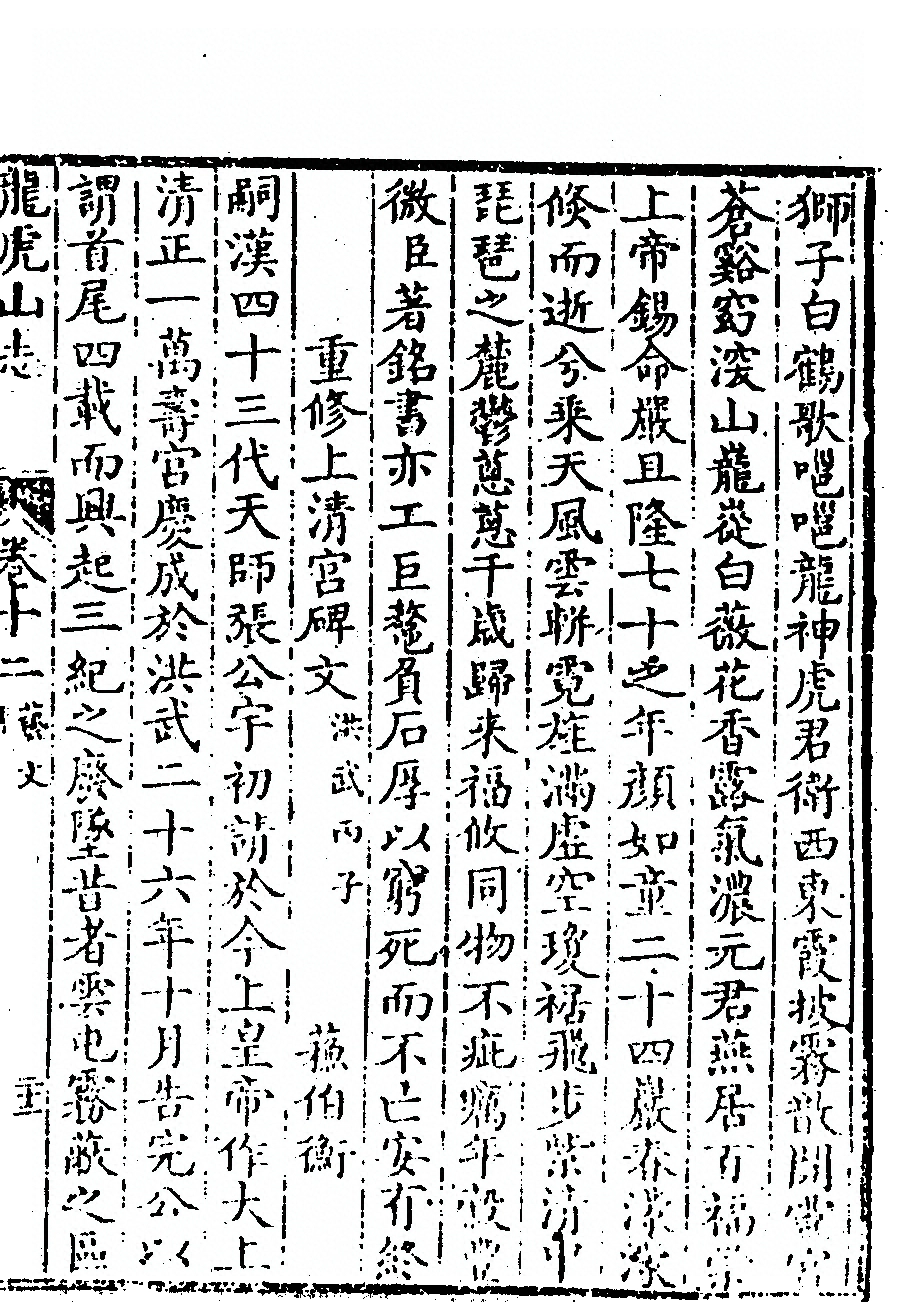 獅子白鶴歌嗈嗈龍神虎君衛西東霞披霧散開
蒼谿窈深山巃嵷白薇花香露氣濃元君燕居百福
上帝錫命嚴且隆七十之年顏如童二十四巖春濛濛
倐而逝兮乗天風雲軿霓旌滿虛空瓊裾飛步紫清中
琵琶之麓鬱蔥蔥千歲歸来福攸同物不疵癘年穀豐
微臣著銘書亦工巨鼇負石厚以窮死而不亡安有終
重修上清宮碑文 洪武丙子 蘓伯衡
嗣漢四十三代天師張公宇初請於今上皇帝作大上
清正一萬壽宮慶成於洪武二十六年十月告完公以
謂首尾四載而興起三紀之廢墜昔者雲屯霧蔽之區
龍虎山志 卷十二 藝文